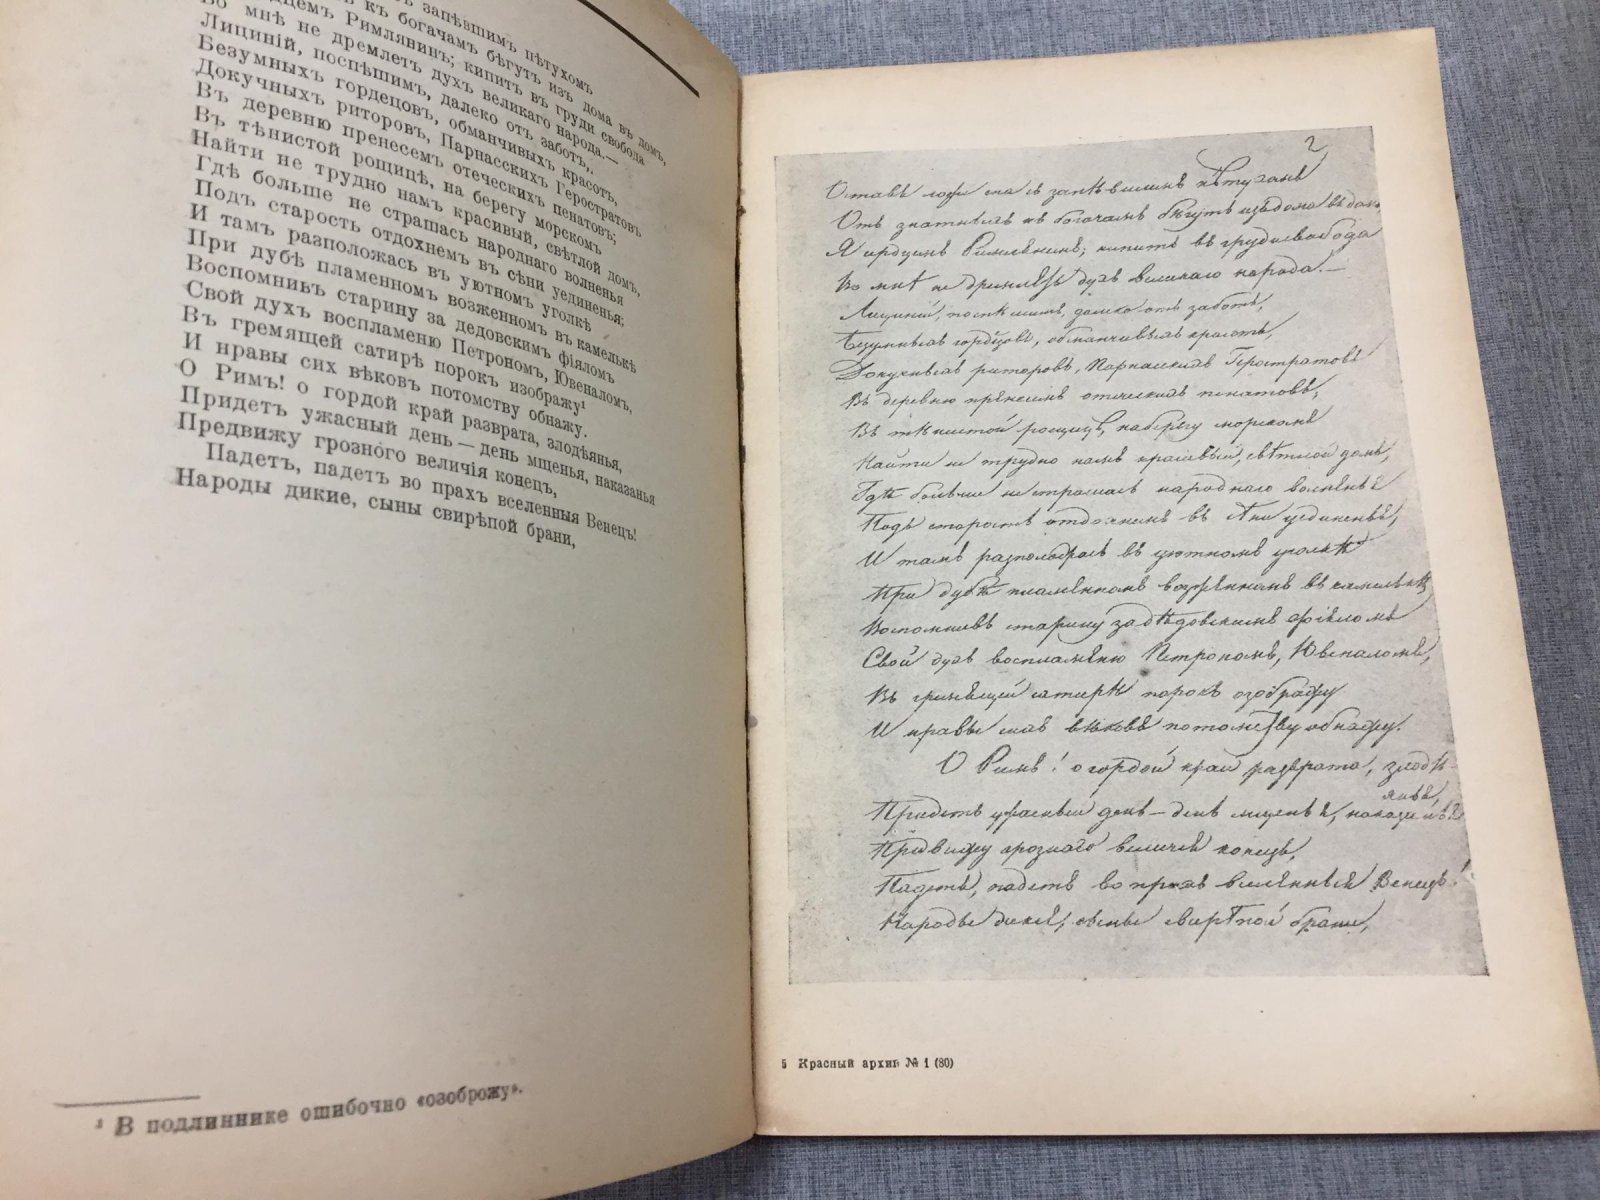 запѣвшимъ пѣтухомъ
къ богачамъ бѣгутъ изъ дома въ домъ,
Римлянинъ; кипитъ въ груди свобода
Во мнѣ не дремлетъ духъ великаго народа.—
Лициній, поспѣшимъ, далеко отъ заботъ,
Безумныхъ гордецовъ, обманчивыхъ красотъ,
Докучныхъ риторовъ, Парнасскихъ Геростратовъ
Въ деревню пренесемъ отеческихъ пенатовъ;
Въ тѣнистой рощицѣ, на берегу морскомъ
Найти не трудно намъ красивый, свѣтлой домъ,
Гдѣ больше не страшась народнаго волненья
Подъ старость отдохнемъ въ сѣни уединенья;
И тамъ разположась въ уютномъ уголкѣ
При дубѣ пламенномъ возженномъ въ камелькѣ
Воспомнивъ старину за дедовскимъ фіяломъ
Свой духъ воспламеню Петрономъ, Ювеналомъ,
Въ гремящей сатирѣ порокъ изображу¹
И нравы сих вѣковъ потомству обнажу.
О Римъ! о гордой край разврата, злодѣянья,
Придетъ ужасный день — день мщенья, наказанья
Предвижу грознѳго величія конецъ,
Падетъ, падетъ во прахъ вселенныя Венецъ!
Народы дикие, сыны свирѣпой брани,
¹ В подлиннике ошибочно «озоброжу».
2
съ запѣвшимъ пѣтухомъ
Отъ знатныхъ къ богачамъ бѣгутъ изъ дома въ домъ,
Я сердцемъ Римлянинъ; кипитъ въ груди свобода
Во мнѣ не дремлетъ духъ великаго народа.—
Лициній, поспѣшимъ, далеко отъ заботъ,
Безумныхъ гордецовъ, обманчивыхъ красотъ,
Докучныхъ риторовъ, Парнасскихъ Геростратовъ
Въ деревню пренесемъ отеческихъ пенатовъ;
Въ тѣнистой рощицѣ, на берегу морскомъ
Найти не трудно намъ красивый, свѣтлой домъ,
Гдѣ больше не страшась народнаго волненья
Подъ старость отдохнемъ въ сѣни уединенья,
И тамъ разположась въ уютномъ уголкѣ
При дубѣ пламенномъ возженномъ въ камелькѣ
Воспомнивъ старину за дѣдовскимъ фіяломъ
Свой духъ воспламеню Петрономъ, Ювеналомъ,
Въ гремящей сатирѣ порокъ озображу
И нравы сихъ вѣковъ потомству обнажу.
О Римъ! о гордой край разврата, злодѣ-
янья,
Придетъ ужасный день — день мщенья, наказанья
Предвижу грознаго величія конецъ,
Падетъ, падетъ во прахъ вселенныя Венецъ!
Народы дикія, сыны свирѣпой брани,
5 Красный архив № 1 (80)